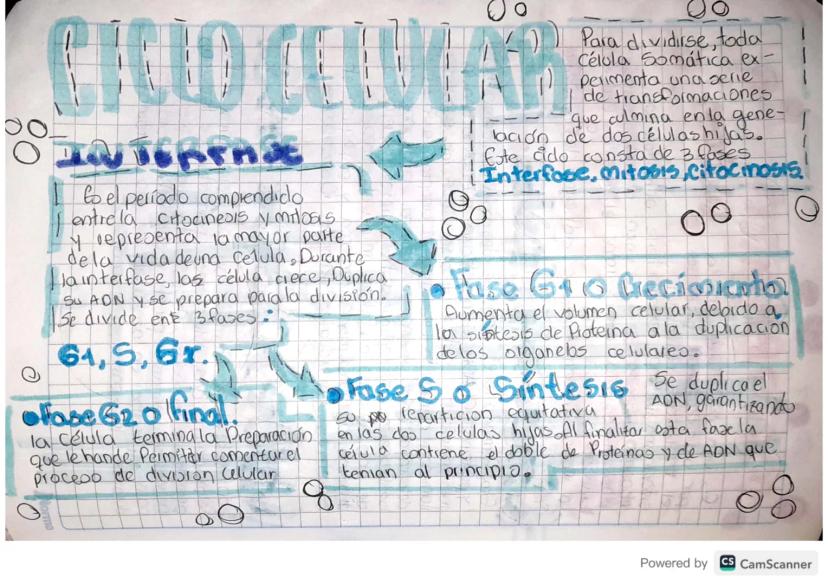 CICLO CELULAR
Para dividirse, toda
célula somática ex-
perimenta una serie
de transformaciones
que culmina en la gene-
ración de dos células hijas.
Este ciclo consta de 3 fases
Interfase, mitosis, citocinosis.
INTERFASE
Es el período comprendido
entre la citocinesis y mitosis
y representa la mayor parte
de la vida de una celula, Durante
la interfase, las célula crece, Duplica
su ADN y se prepara para la división.
Se divide en 3 fases:
G1, S, G2.
Fase G1 o Crecimiento
Aumenta el volumen celular, debido a
la síntesis de Proteina a la duplicación
de los organelos celulares.
Fase S o Síntesis
Se duplica el
ADN, garantizando
su repartición equitativa
en las dos celulas hijas. Al finalizar esta fase la
célula contiene el doble de Proteínas y de ADN que
tenían al principio.
Fase G2 o final.
la célula termina la Preparación
que le han de Permitir comentar el
proceso de división celular
Powered by CS CamScanner